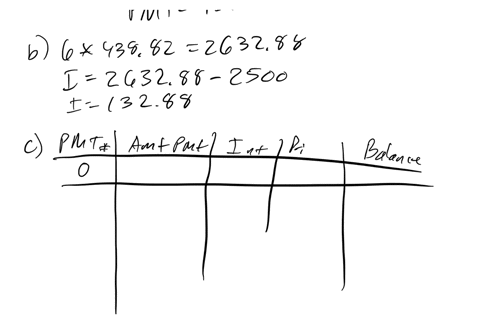 b) 6 * 438.82 = 2632.88
I = 2632.88 - 2500
I = 132.88
c) PMT# Amt Pmt Int Pri Balance
0